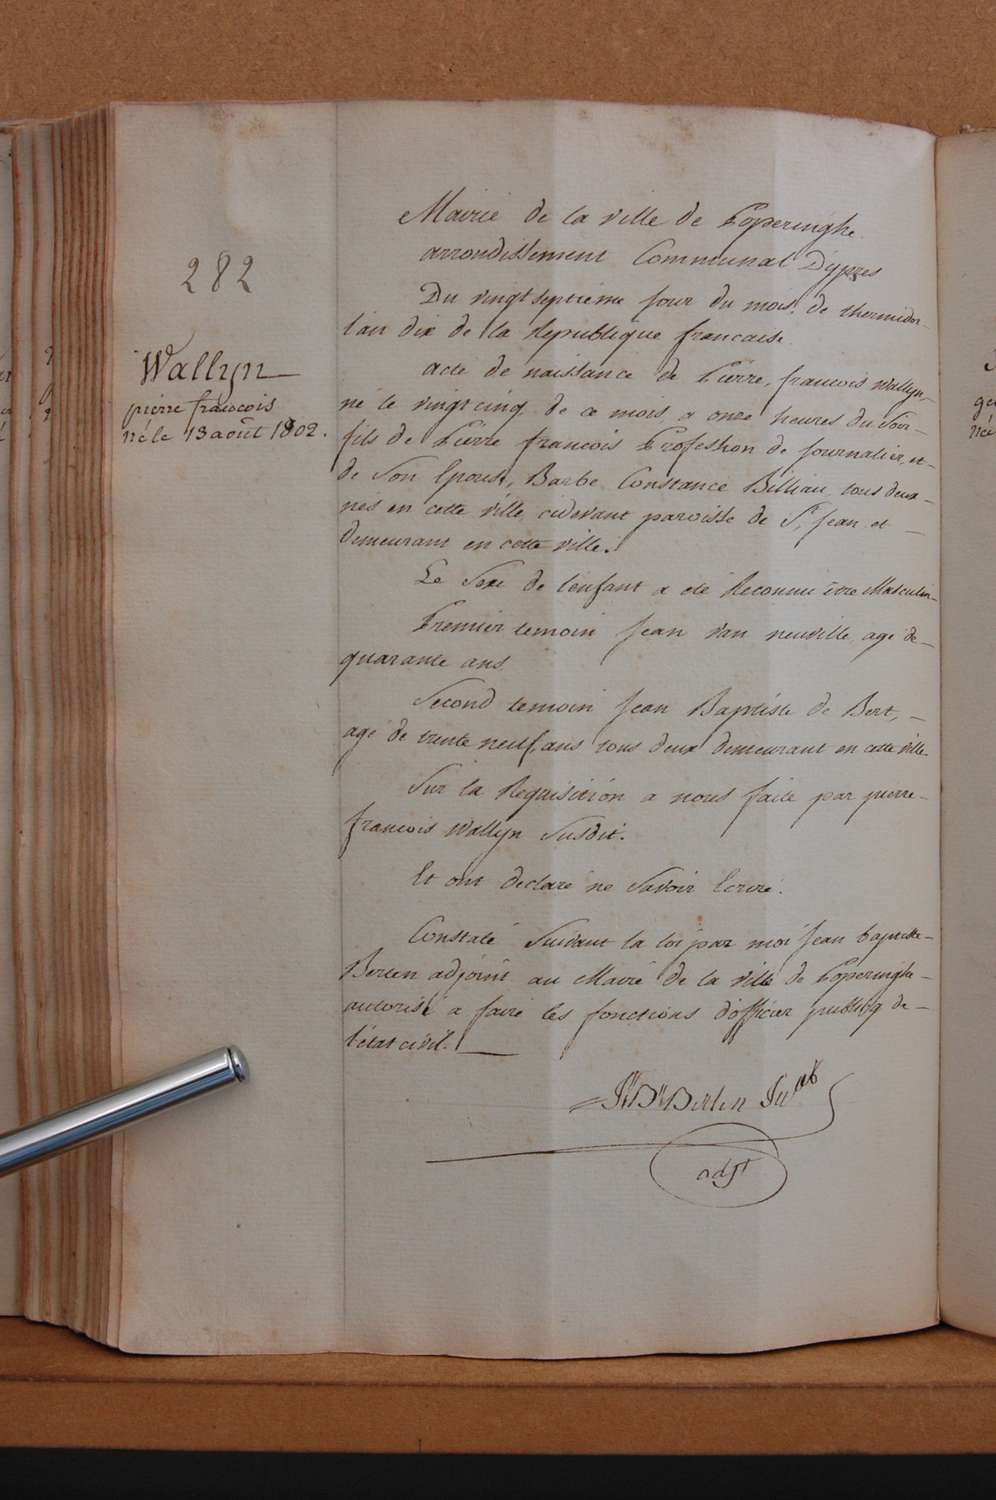 282
Wallyn
pierre francois
né le 13 août 1802.
Mairie de la ville de Poperinghe
arrondissement Communal Dypres
Du vingt septieme jour du mois de thermidor
l'an dix de la Republique francaise.
acte de naissance de Pierre, francois Wallyn,
né le vingt cinq de ce mois a onze heures du Soir
fils de Pierre francois Profession de journalier, et
de Son Epouse, Barbe Constance Billiau, tous deux
nés en cette ville cidevant paroisse de St Jean et
demeurant en cette ville.
Le Sexe de l'enfant a été Reconnu être Masculin
Premier temoin Jean van neuville, agé de
quarante ans.
Second temoin Jean Baptiste de Bert,
agé de trente neuf, ans tous deux demeurant en cette ville
Sur la Requisition a nous faite par pierre
francois Wallyn Susdit.
Et ont declaré ne Savoir Ecrire.
Constaté Suivant la loi par moi Jean baptiste
Berten adjoint au Maire de la ville de Poperinghe
autorisé a faire les fonctions d'officier publicq de
l'état civil.
Jn Bt Berten
adjt